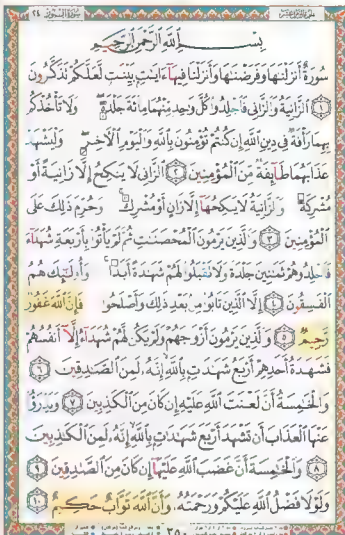 سورة النور ٢٤
بِسْمِ اللَّهِ الرَّحْمَٰنِ الرَّحِيمِ
سُورَةٌ أَنزَلْنَٰهَا وَفَرَضْنَٰهَا وَأَنزَلْنَا فِيهَآ ءَايَٰتٍۭ بَيِّنَٰتٍ لَّعَلَّكُمْ تَذَكَّرُونَ
١ ٱلزَّانِيَةُ وَٱلزَّانِى فَٱجْلِدُوا۟ كُلَّ وَٰحِدٍ مِّنْهُمَا مِا۟ئَةَ جَلْدَةٍ وَلَا تَأْخُذْكُم
بِهِمَا رَأْفَةٌ فِى دِينِ ٱللَّهِ إِن كُنتُمْ تُؤْمِنُونَ بِٱللَّهِ وَٱلْيَوْمِ ٱلْءَاخِرِ وَلْيَشْهَدْ
عَذَابَهُمَا طَآئِفَةٌ مِّنَ ٱلْمُؤْمِنِينَ ٢ ٱلزَّانِى لَا يَنكِحُ إِلَّا زَانِيَةً أَوْ
مُشْرِكَةً وَٱلزَّانِيَةُ لَا يَنكِحُهَآ إِلَّا زَانٍ أَوْ مُشْرِكٌ وَحُرِّمَ ذَٰلِكَ عَلَى
ٱلْمُؤْمِنِينَ ٣ وَٱلَّذِينَ يَرْمُونَ ٱلْمُحْصَنَٰتِ ثُمَّ لَمْ يَأْتُوا۟ بِأَرْبَعَةِ شُهَدَآءَ
فَٱجْلِدُوهُمْ ثَمَٰنِينَ جَلْدَةً وَلَا تَقْبَلُوا۟ لَهُمْ شَهَٰدَةً أَبَدًا وَأُو۟لَٰٓئِكَ هُمُ
ٱلْفَٰسِقُونَ ٤ إِلَّا ٱلَّذِينَ تَابُوا۟ مِنۢ بَعْدِ ذَٰلِكَ وَأَصْلَحُوا۟ فَإِنَّ ٱللَّهَ غَفُورٌ
رَّحِيمٌ ٥ وَٱلَّذِينَ يَرْمُونَ أَزْوَٰجَهُمْ وَلَمْ يَكُن لَّهُمْ شُهَدَآءُ إِلَّآ أَنفُسُهُمْ
فَشَهَٰدَةُ أَحَدِهِمْ أَرْبَعُ شَهَٰدَٰتٍۭ بِٱللَّهِ إِنَّهُۥ لَمِنَ ٱلصَّٰدِقِينَ ٦
وَٱلْخَٰمِسَةُ أَنَّ لَعْنَتَ ٱللَّهِ عَلَيْهِ إِن كَانَ مِنَ ٱلْكَٰذِبِينَ ٧ وَيَدْرَؤُا۟
عَنْهَا ٱلْعَذَابَ أَن تَشْهَدَ أَرْبَعَ شَهَٰدَٰتٍۭ بِٱللَّهِ إِنَّهُۥ لَمِنَ ٱلْكَٰذِبِينَ
٨ وَٱلْخَٰمِسَةَ أَنَّ غَضَبَ ٱللَّهِ عَلَيْهَآ إِن كَانَ مِنَ ٱلصَّٰدِقِينَ ٩
وَلَوْلَا فَضْلُ ٱللَّهِ عَلَيْكُمْ وَرَحْمَتُهُۥ وَأَنَّ ٱللَّهَ تَوَّابٌ حَكِيمٌ ١٠
٣٥٠